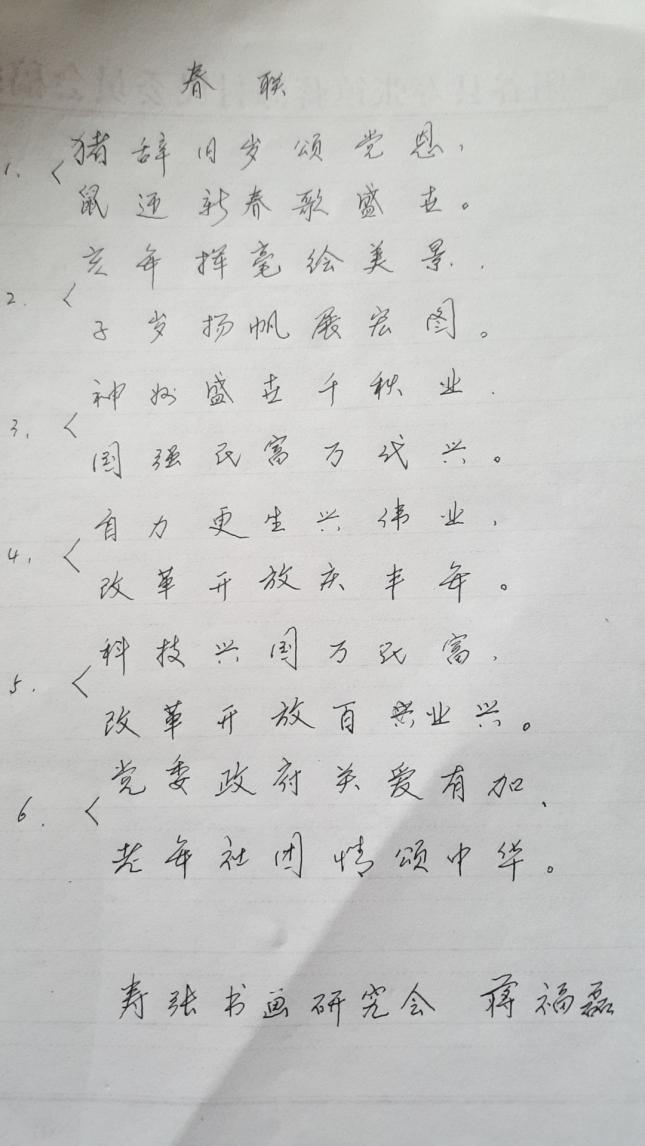 春联
1. 猪辞旧岁颂党恩，
鼠迎新春歌盛世。
2. 亥年挥毫绘美景，
子岁扬帆展宏图。
3. 神州盛世千秋业，
国强民富万代兴。
4. 自力更生兴伟业，
改革开放庆丰年。
5. 科技兴国万民富，
改革开放百业兴。
6. 党委政府关爱有加，
老年社团情颂中华。
寿张书画研究会 蒋福磊